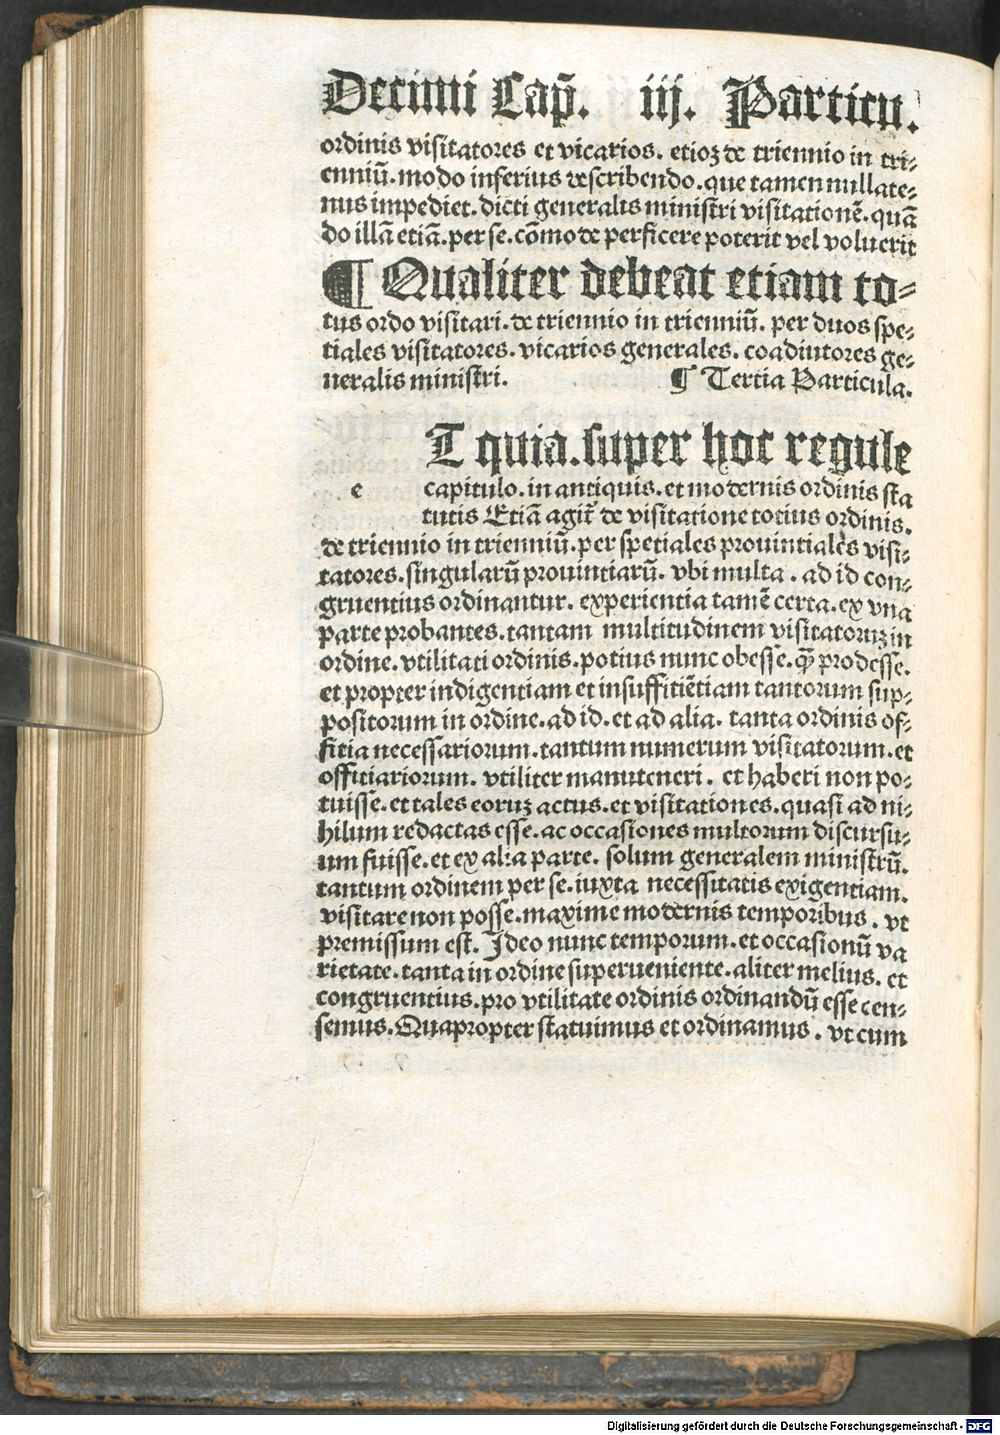 Decimi Cap̃. iij. Particu.
ordinis visitatores et vicarios. etioꝫ de triennio in tri⸗
enniũ. modo inferius describendo. que tamen nullate⸗
nus impediet. dicti generalis ministri visitationẽ. quã
do illã etiã. per se. cõmode perficere poterit vel voluerit
¶ Qualiter debeat etiam to⸗
tus ordo visitari. de triennio in trienniũ. per duos spe⸗
tiales visitatores. vicarios generales. coadiutores ge⸗
neralis ministri. ¶ Tertia Particula.
T quia. super hoc regule
e capitulo. in antiquis. et modernis ordinis sta
tutis Etiã agit̃ de visitatione totius ordinis.
de triennio in trienniũ. per spetiales prouintiales visi⸗
tatores. singularũ prouintiarũ. vbi multa. ad id con⸗
gruentius ordinantur. experientia tamẽ certa. ex vna
parte probantes. tantam multitudinem visitatoruꝫ in
ordine. vtilitati ordinis. potius nunc obesse. q̃ꝫ prodesse.
et propter indigentiam et insuffitiẽtiam tantorum sup⸗
positorum in ordine. ad id. et ad alia. tanta ordinis of⸗
fitia necessariorum. tantum numerum visitatorum. et
offitiariorum. vtiliter manuteneri. et haberi non po⸗
tuisse. et tales eoruꝫ actus. et visitationes. quasi ad ni⸗
hilum redactas esse. ac occasiones multorum discursu⸗
um fuisse. et ex alia parte. solum generalem ministrũ.
tantum ordinem per se. iuxta necessitatis exigentiam.
visitare non posse. maxime modernis temporibus. vt
premissum est. Ideo nunc temporum. et occasionũ va
rietate. tanta in ordine superueniente. aliter melius. et
congruentius. pro vtilitate ordinis ordinandũ esse cen⸗
semus. Quapropter statuimus et ordinamus. vt cum
Digitalisierung gefördert durch die Deutsche Forschungsgemeinschaft - DFG